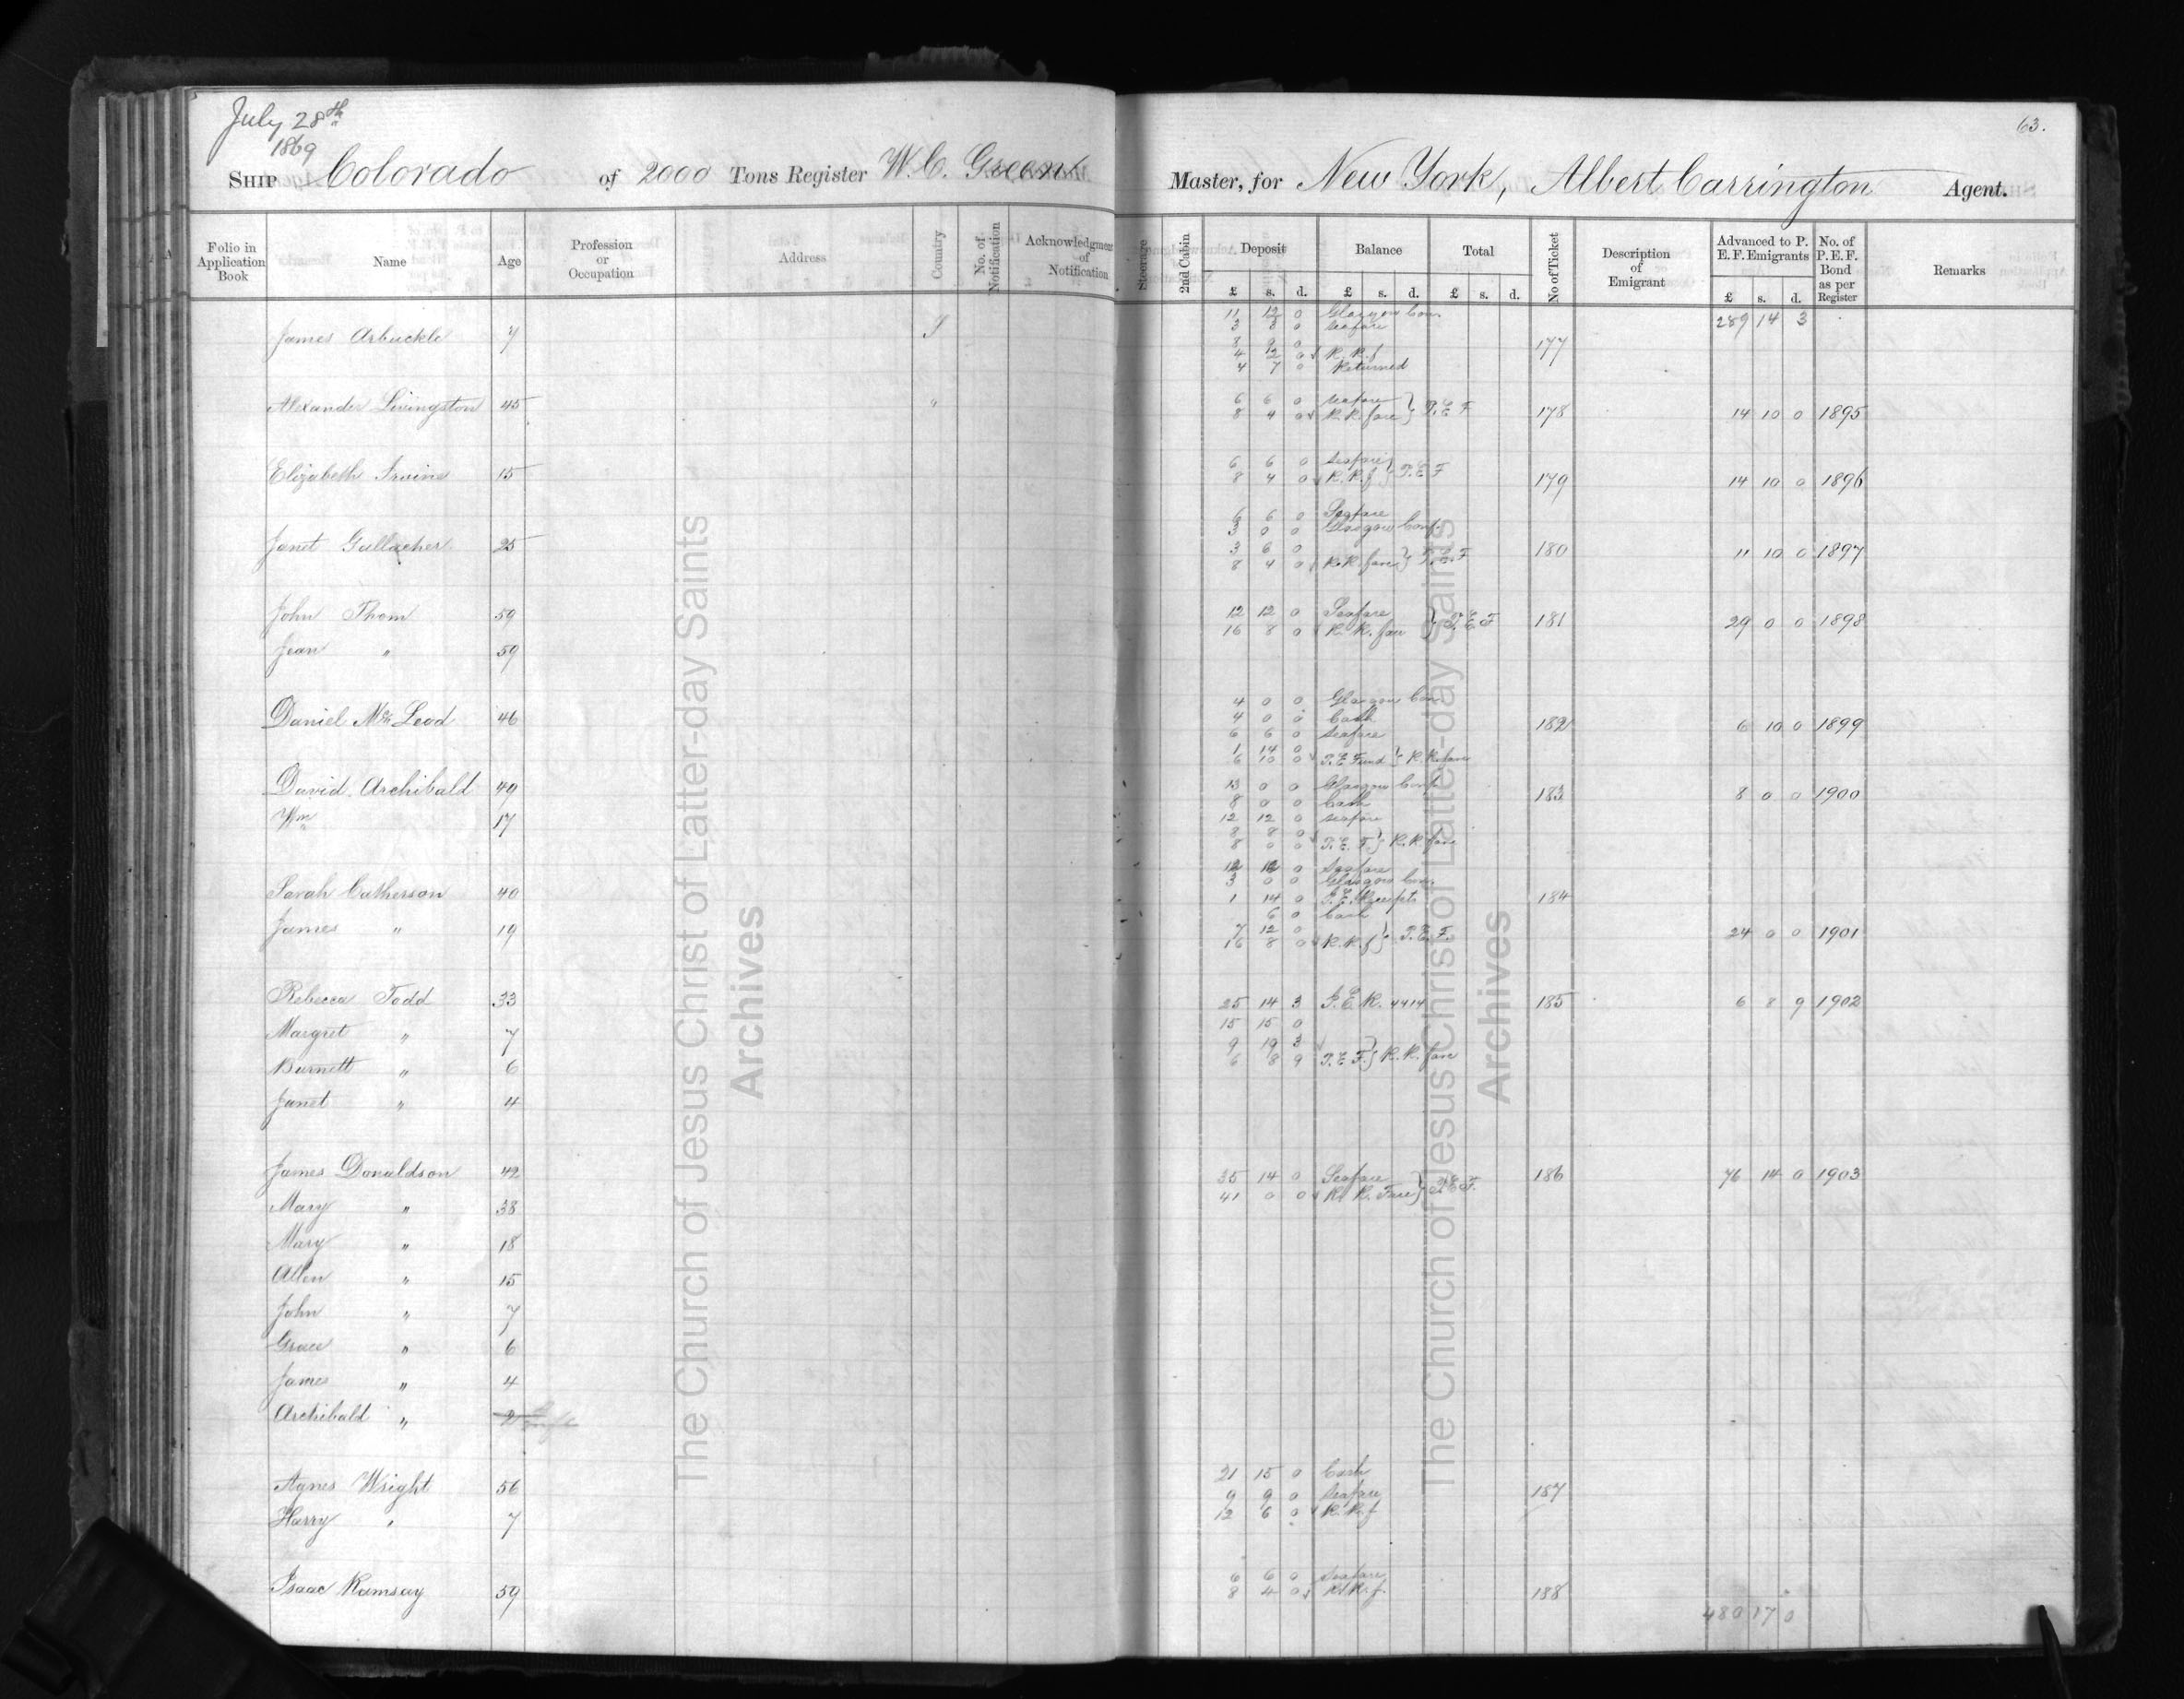 July 28th
1869
63.
SHIP Colorado of 2000 Tons Register W. C. Green Master, for New York, Albert Carrington Agent.
Folio in Application Book Name Age Profession or Occupation Address Country No. of Notification Acknowledgment of Notification Steerage 2nd Cabin Deposit Balance Total No of Ticket Description of Emigrant Advanced to P. E. F. Emigrants No. of P. E. F. Bond as per Register Remarks
£ s. d. £ s. d. £ s. d. £ s. d.
11 12 0 Glasgow Con. 289 14 3
3 3 0 Seafare
James Arbuckle 7 S
8 9 0 177
4 12 0 R. R. f
4 7 0 Returned
6 6 0 Seafare
Alexander Livingston 45 " 8 4 0 R. R. fare } P. E. F 178 14 10 0 1895
6 6 0 Seafare
Elizabeth Irvine 15 8 4 0 R. R. f } P. E. F 179 14 10 0 1896
6 6 0 Seafare
3 0 0 Glasgow Conf.
Janet Gallacher 25 3 6 0 180 11 10 0 1897
8 4 0 R. R. fare } P. E. F
John Thom 59 12 12 0 Seafare 181 29 0 0 1898
16 8 0 R. R. fare } P. E. F
Jean " 59
4 0 0 Glasgow Con.
Daniel Mc Leod 46 4 0 0 Cash 182 6 10 0 1899
6 6 0 Seafare
1 14 0
6 10 0 P. E. Fund } R. R. fare
David Archibald 49 13 0 0 Glasgow Conf. 183 8 0 0 1900
8 0 0 Cash
Wm 17 12 12 0 Seafare
8 8 0
8 0 0 P. E. F. } R. R. fare
12 12 0 Seafare
3 0 0 Glasgow Con.
Sarah Catherson 40 1 14 0 P. E. Receipts 184
6 0 Cash
James " 19 7 12 0 24 0 0 1901
16 8 0 R. R. f } P. E. F.
Rebecca Todd 33 25 14 3 P. E. R. 4414 185 6 8 9 1902
15 15 0
Margret " 7 9 19 3
Burnett " 6 6 8 9 P. E. F. } R. R. fare
Janet " 4
James Donaldson 42 35 14 0 Seafare 186 76 14 0 1903
41 0 0 R. R. Fare } P. E. F.
Mary " 38
Mary " 18
Allen " 15
John " 7
Grace " 6
James " 4
Archibald " 2
21 15 0 Cash
Agnes Wright 56 9 9 0 Seafare 187
Harry " 7 12 6 0 R. R. f
6 6 0 Seafare
Isaac Ramsay 59 8 4 0 R. R. f. 188
480 17 0
The Church of Jesus Christ of Latter-day Saints
Archives
The Church of Jesus Christ of Latter-day Saints
Archives